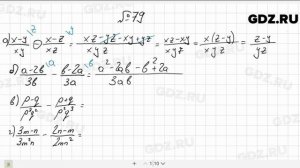 GDZ.RU
№79
а) x-y/xy - x-z/xz = xz-yz-xy+yz/xyz = xz-xy/xyz = x(z-y)/xyz = z-y/yz
б) a-2b/3b - b-2a/3a = a²-2ab-b²+2a/3ab
в) p-q/p³q² - p+q/p²q³ =
г) 3m-n/3m²n - 2n-m/2mn² =
GDZ.RU